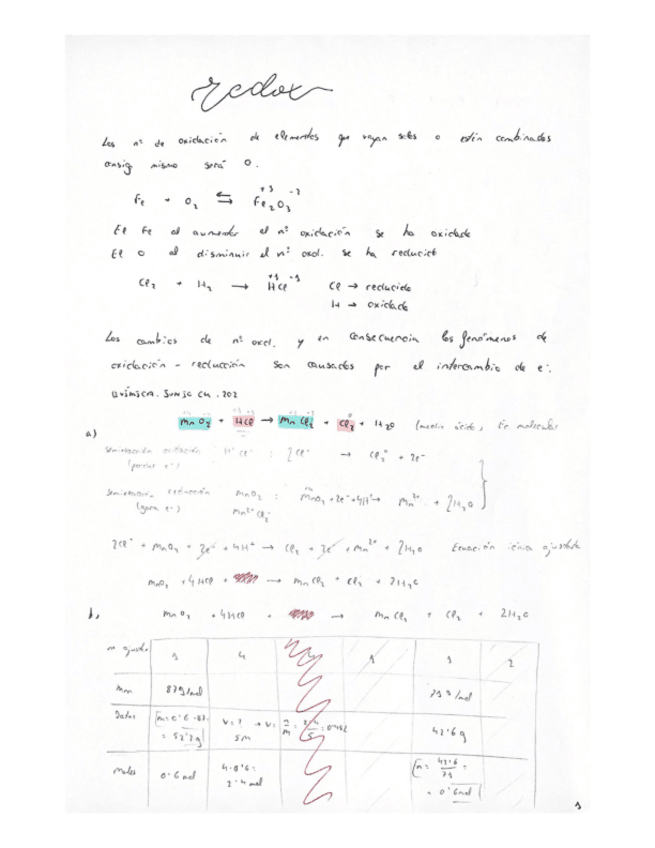 redox
Los nº de oxidación de elementos que vayan solos o estén combinados
consig mismo será 0.
Fe + O2 ⇆ Fe2O3 +3 -2
El Fe al aumentar el nº oxidación se ha oxidado
El O al disminuir el nº oxd. se ha reducido
Cl2 + H2 → HCl +1 -1 Cl → reducido
H → oxidado
Los cambios de nº oxd. y en consecuencia los fenómenos de
oxidación - reducción son causados por el intercambio de e-.
QUÍMICA. JUNIO CM. 202
a) MnO2 + HCl → MnCl2 + Cl2 + H2O (medio ácido,
Semirreacción oxidación H+ Cl- : 2Cl- → Cl2 + 2e-
(pierde e-)
Semirreacción reducción MnO2 : MnO2 + 2e- + 4H+ → Mn2+ + 2H2O
(gana e-) Mn2+ Cl2-
2Cl- + MnO2 + 2e- + 4H+ → Cl2 + 2e- + Mn2+ + 2H2O Ecuación iónica ajustada
MnO2 + 4HCl + → MnCl2 + Cl2 + 2H2O
b) MnO2 + 4HCl + → MnCl2 + Cl2 + 2H2O
n ajuste 1 4 1 1 2
Mm 87g/mol 71g/mol
Datos m=0'6·87 = 52'2g V=? → V= n/M = 2'4/5 = 0'48L 5M 42'6g
moles 0'6 mol 4·0'6 = 2'4 mol n = 42'6/71 = 0'6mol
1